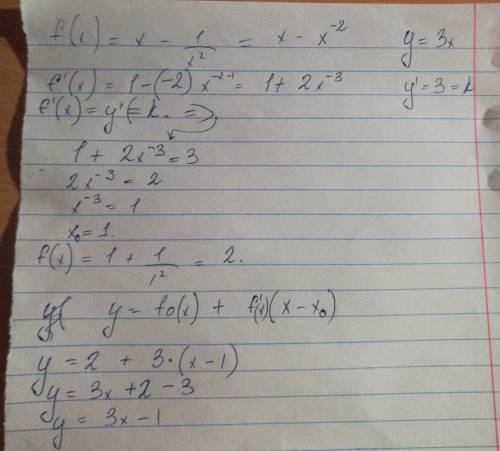 f(x) = x - 1/x² = x - x⁻² y = 3x
f'(x) = 1 - (-2) x⁻²⁻¹ = 1 + 2x⁻³ y' = 3 = k
f'(x) = y' = k. =>
1 + 2x⁻³ = 3
2x⁻³ = 2
x⁻³ = 1
x₀ = 1.
f(x) = 1 + 1/1² = 2.
y = f₀(x) + f'(x)(x - x₀)
y = 2 + 3·(x - 1)
y = 3x + 2 - 3
y = 3x - 1